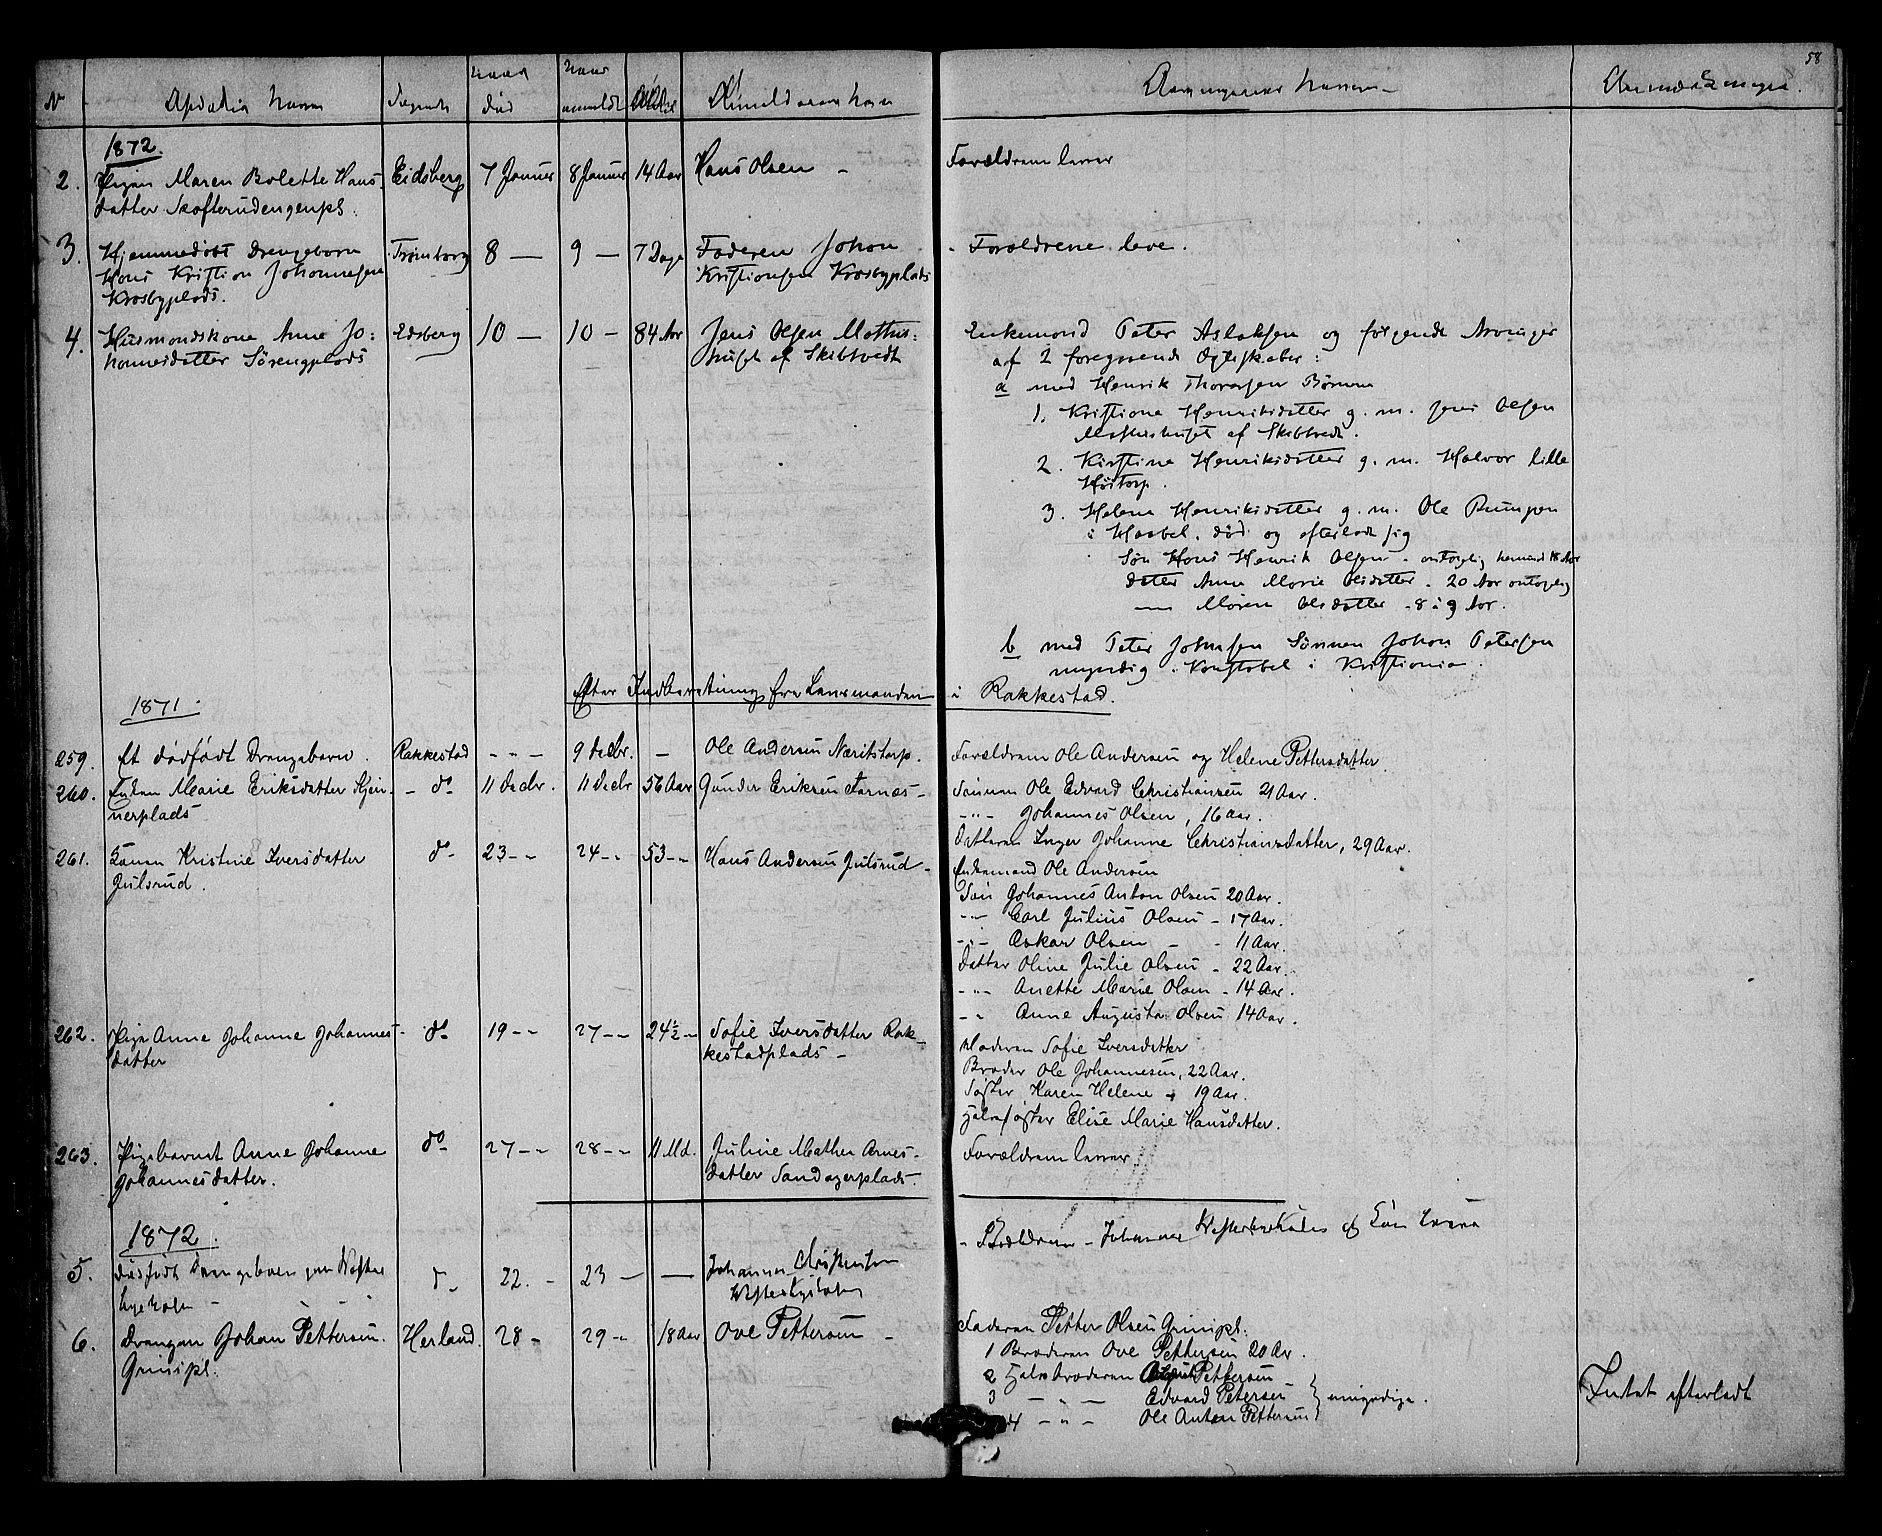 58
No Afdødes Navn Sogneds Naar død Naar anmeldt Alder Anmelderens Navn Arvingernes Navne Anmærkninger.
1872.
2. Pigen Maren Bolette Hans- Eidsberg 7 Januar 8 Januar 14 Aar Hans Olsen - Forældrene lever
datter Skofterudengenpl.
3. Hjemmedøbt Drengebarn Trømborg 8 — 9 — 7 Dage Faderen Johan - Forældrene leve.
Hans Kristian Johannesen Kristiansen Krosbyplads
Krosbyplads.
4. Husmandskone Anne Jo: Edsberg 10 — 10 — 84 Aar Jens Olsen Mathis: Enkemand Peter Aslaksen og følgende Arvinger
hannesdatter Sørengplads huset af Skibtvedt af 2 foregaaende Ægteskaber:
a med Henrik Thoresen Børnene
1. Kristiane Henriksdatter g. m. Jens Olsen
Mathishuset af Skibtvedt.
2. Kirstine Henriksdatter g. m. Halvor lille
Høstorp.
3. Helene Henriksdatter g. m. Ole
i Haabøl. død og efterladt sig
Søn Hans Henrik Olsen - antagelig 18 Aar
datter Anne Marie Olsdatter - 20 Aar antagelig
— Maren Olsdatter - 8 à 9 Aar.
b med Peter Johnsen Sønnen Johan Petersen
myndig. Konstabel i Kristiania.
Efter Indberetning fra Lensmanden i Rakkestad.
1871.
259. Et dødfødt Drengebarn. Rakkestad - - - 9 Decbr. — Ole Andersen Næritstorp. Forældrene Ole Andersen og Helene Pettersdatter
260. Enken Marie Eriksdatter - do 11 Decbr. 11 Decbr 56 Aar Gunder Eriksen Tarnes - Sønnen Ole Edvard Christiansen 21 Aar.
nerplads -"- Johannes Olsen, 16 Aar.
Datteren Inger Johanne Christiansdatter, 29 Aar.
261. Konen Kristine Iversdatter do 23 - - 24 - - 53 - - Hans Andersen Julsrud - Enkemand Ole Andersen
Julsrud. Søn Johannes Anton Olsen 20 Aar.
-"- Carl Julius Olsen - 17 Aar.
-"- Oskar Olsen - - 11 Aar.
Datter Oline Julie Olsen - 22 Aar.
-"- Anette Marie Olsen - 14 Aar.
-"- Anne Augusta Olsen 14 Aar.
262. Pige Anne Johanne Johannes- do 19 - - 27 - - 24½ - Sofie Iversdatter Rak- Moderen Sofie Iversdatter
datter kestadplads - Broder Ole Johannesen, 22 Aar.
Søster Karen Helene - 19 Aar.
Halvsøster Elise Marie Hansdatter.
263. Pigebarnet Anne Johanne do 27 - - 28 - - 11 Md. Juline Mathea Arnes- Forældrene lever
Johannesdatter. datter Sandagerplads.
1872. - Forældrene - Johannes
5. Dødfødt Drengebarn d - 22. - 23 — — Johannes Christensen
6. Drengen Johan Pettersen. Herland. 28 - 29 - 18 Aar Ove Pettersen - Faderen Petter Olsen Grinipl.
Grinipl. 1 Broderen Ove Pettersen 20 Ar.
2 Halvbroderen Pettersen
3 - " - Edvard Petersen } umyndige. Intet efterladt
4 - " - Ole Anton Pettersen